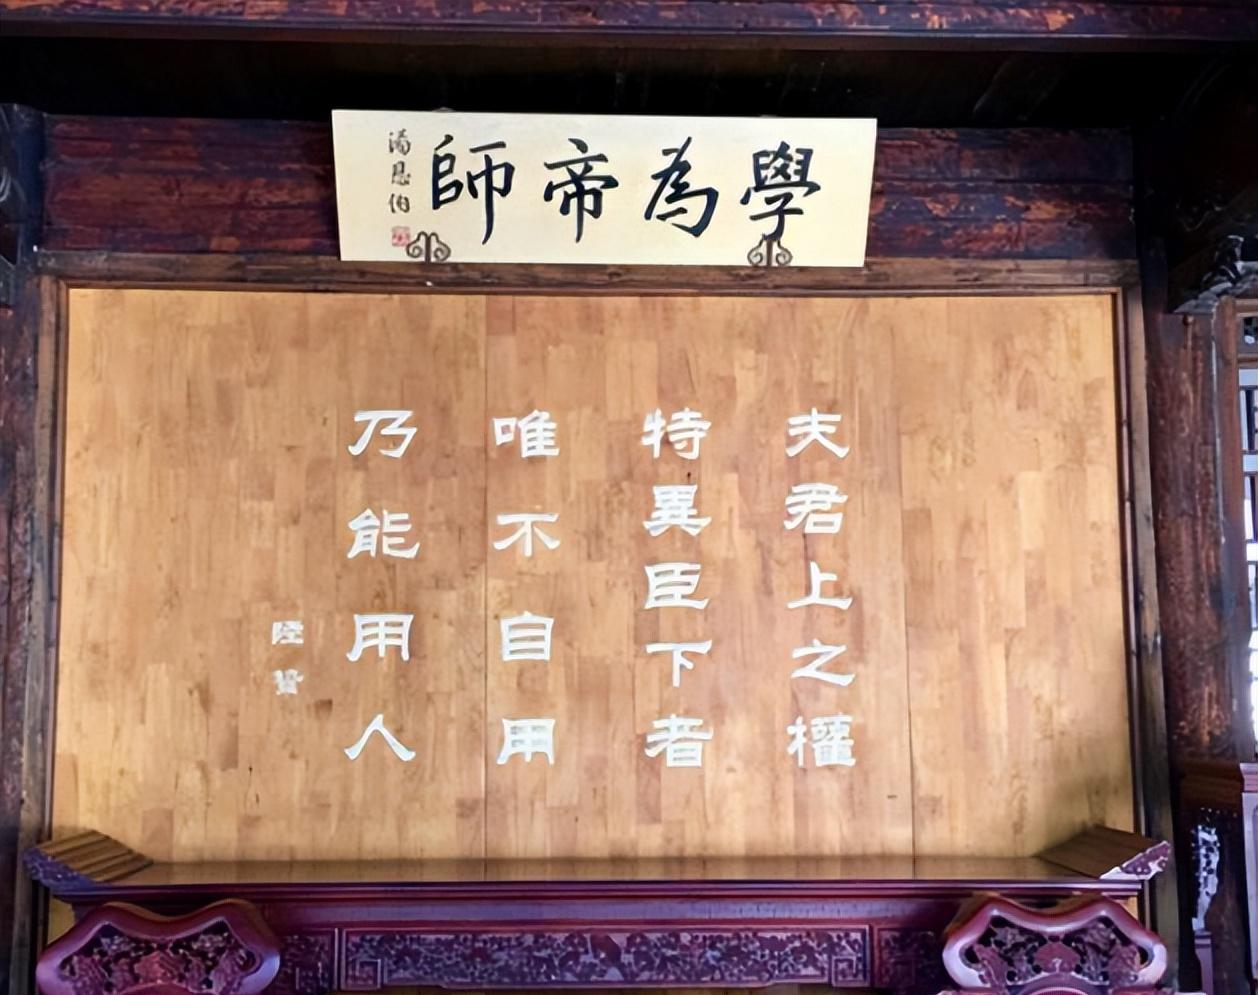 學為帝師
潘恩伯
夫君上之權
特異臣下者
唯不自用
乃能用人
陸贄